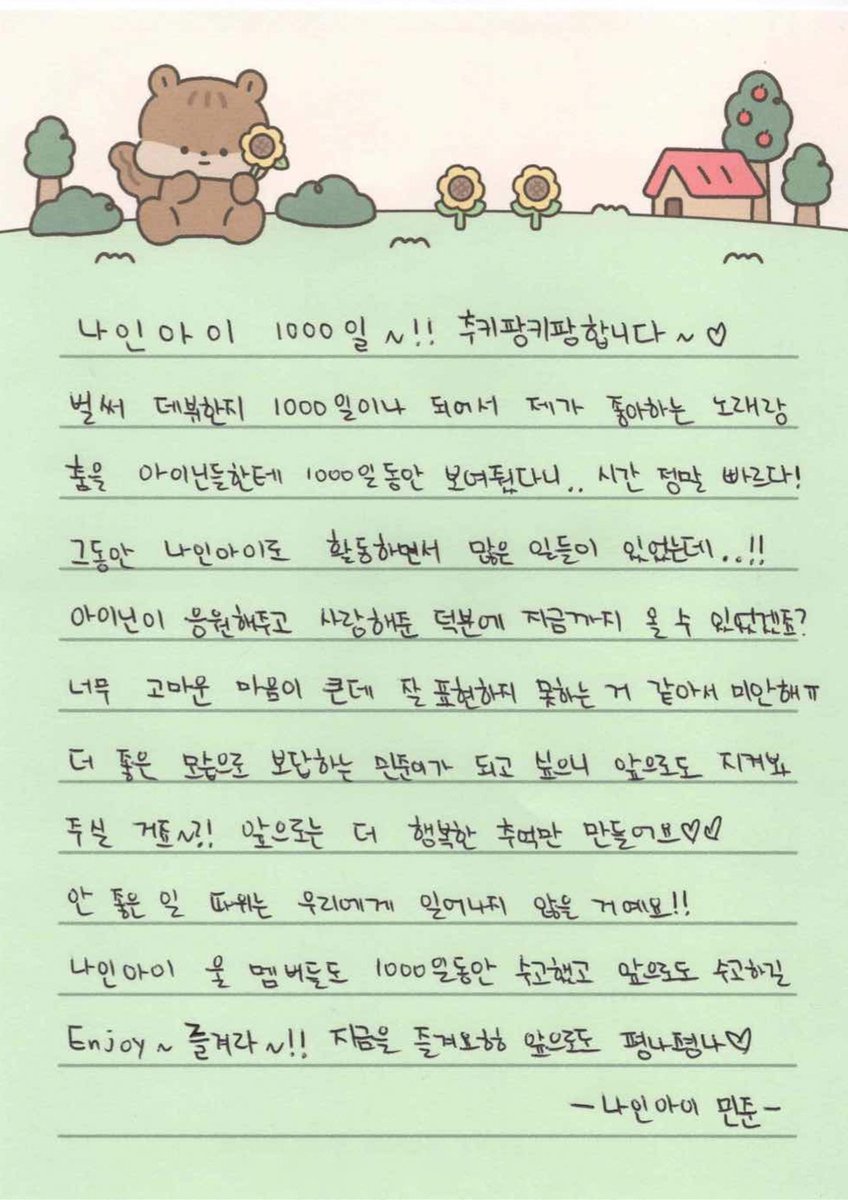 나인아이 1000일 ~!! 추키팡키팡합니다~♡
벌써 데뷔한지 1000일이나 되어서 제가 좋아하는 노래랑
춤을 아이닌들한테 1000일동안 보여줬다니.. 시간 정말 빠르다!
그동안 나인아이로 활동하면서 많은 일들이 있었는데..!!
아이닌이 응원해주고 사랑해준 덕분에 지금까지 올 수 있었겠죠?
너무 고마운 마음이 큰데 잘 표현하지 못하는 거 같아서 미안해ㅠ
더 좋은 모습으로 보답하는 민준이가 되고 싶으니 앞으로도 지켜봐
주실 거죠~?! 앞으로는 더 행복한 추억만 만들어브♡♡
안 좋은 일 따위는 우리에게 일어나지 않을 거예요!!
나인아이 울 멤버들도 1000일동안 수고했고 앞으로도 수고하길
Enjoy~ 즐겨라~!! 지금을 즐겨요ㅎㅎ 앞으로도 평나평나♡
-나인아이 민준-